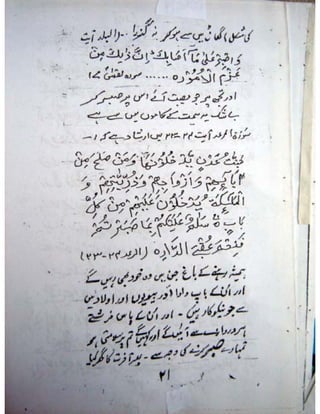 کی شکل گھاٹیوں سے ہو کر نہ گذرا ۔۔ (البلد آیت
وَاصْبِرْ عَلٰی مَآ اَصَابَكَ اِنَّ ذٰلِكَ مِنْ
عَزْمِ الْاُمُوْرِ ۔۔۔۔۔۔ سورہ لقمٰن ۱۷
اور تجھ پر جو مصیبت آئے اس پر صبر کر
بے شک یہ ہمت کے کاموں میں سے ہے
سورۃ الرعد آیت ۲۳-۲۴ میں ارشاد ہے کہ :-
جَنّٰتُ عَدْنٍ یَّدْخُلُوْنَهَا وَمَنْ صَلَحَ مِنْ
اٰبَآئِهِمْ وَاَزْوَاجِهِمْ وَذُرِّیّٰتِهِمْ وَ
الْمَلٰٓئِكَةُ یَدْخُلُوْنَ عَلَیْهِمْ مِنْ كُلِّ
بَابٍ ۝ سَلٰمٌ عَلَیْكُمْ بِمَا صَبَرْتُمْ
فَنِعْمَ عُقْبَی الدَّارِ ۝ (الرعد ۲۴-۲۳)
ہمیشہ رہنے کے باغ جن میں وہ خود بھی رہیں گے
اور انکے باپ دادا اور بیویوں اور اولاد میں
سے جو نیکوکار ہیں ۔ اور انکے پاس فرشتے
ہر دروازے سے آئیں گے اور کہیں گے تم پر سلامتی ہو
تمہارے صبر کرنے کی وجہ سے ۔ آخرت کا گھر کیا
۲۱